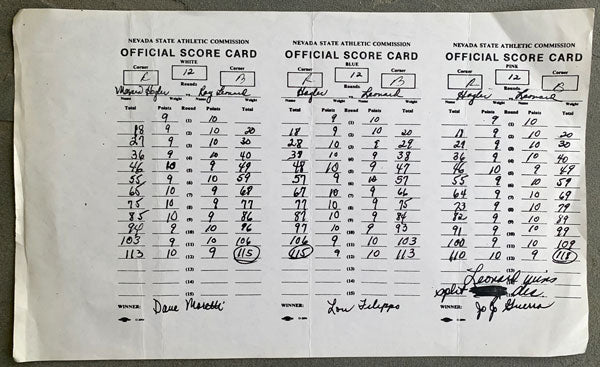 NEVADA STATE ATHLETIC COMMISSION
OFFICIAL SCORE CARD
WHITE
Corner 12 Corner
R Rounds B
Hagler vs. Ray Leonard
Name Weight Name Weight
Total Points Round Points Total
9 (1) 10
18 9 (2) 10 20
27 9 (3) 10 30
36 9 (4) 10 40
46 10 (5) 9 49
55 9 (6) 10 59
65 10 (7) 9 68
75 10 (8) 9 77
85 10 (9) 9 86
94 9 (10) 10 96
103 9 (11) 10 106
113 10 (12) 9 115
(13)
(14)
(15)
WINNER:
Dave Moretti
NEVADA STATE ATHLETIC COMMISSION
OFFICIAL SCORE CARD
BLUE
Corner 12 Corner
R Rounds B
Hagler vs. Leonard
Name Weight Name Weight
Total Points Round Points Total
9 (1) 10
18 9 (2) 10 20
28 10 (3) 9 29
38 10 (4) 9 38
48 10 (5) 9 47
57 9 (6) 10 57
67 10 (7) 9 66
77 10 (8) 9 75
87 10 (9) 9 84
97 10 (10) 9 93
106 9 (11) 10 103
115 9 (12) 10 113
(13)
(14)
(15)
WINNER:
Lou Filippo
NEVADA STATE ATHLETIC COMMISSION
OFFICIAL SCORE CARD
PINK
Corner 12 Corner
R Rounds B
Hagler vs. Leonard
Name Weight Name Weight
Total Points Round Points Total
9 (1) 10
18 9 (2) 10 20
9 (3) 10
36 9 (4) 10 40
46 10 (5) 9 49
55 9 (6) 10 59
64 9 (7) 10 69
73 9 (8) 10 79
82 9 (9) 10 89
91 9 (10) 10 99
100 9 (11) 10 109
110 10 (12) 9 118
Leonard wins
split dec.
WINNER:
Jo Jo Guerra